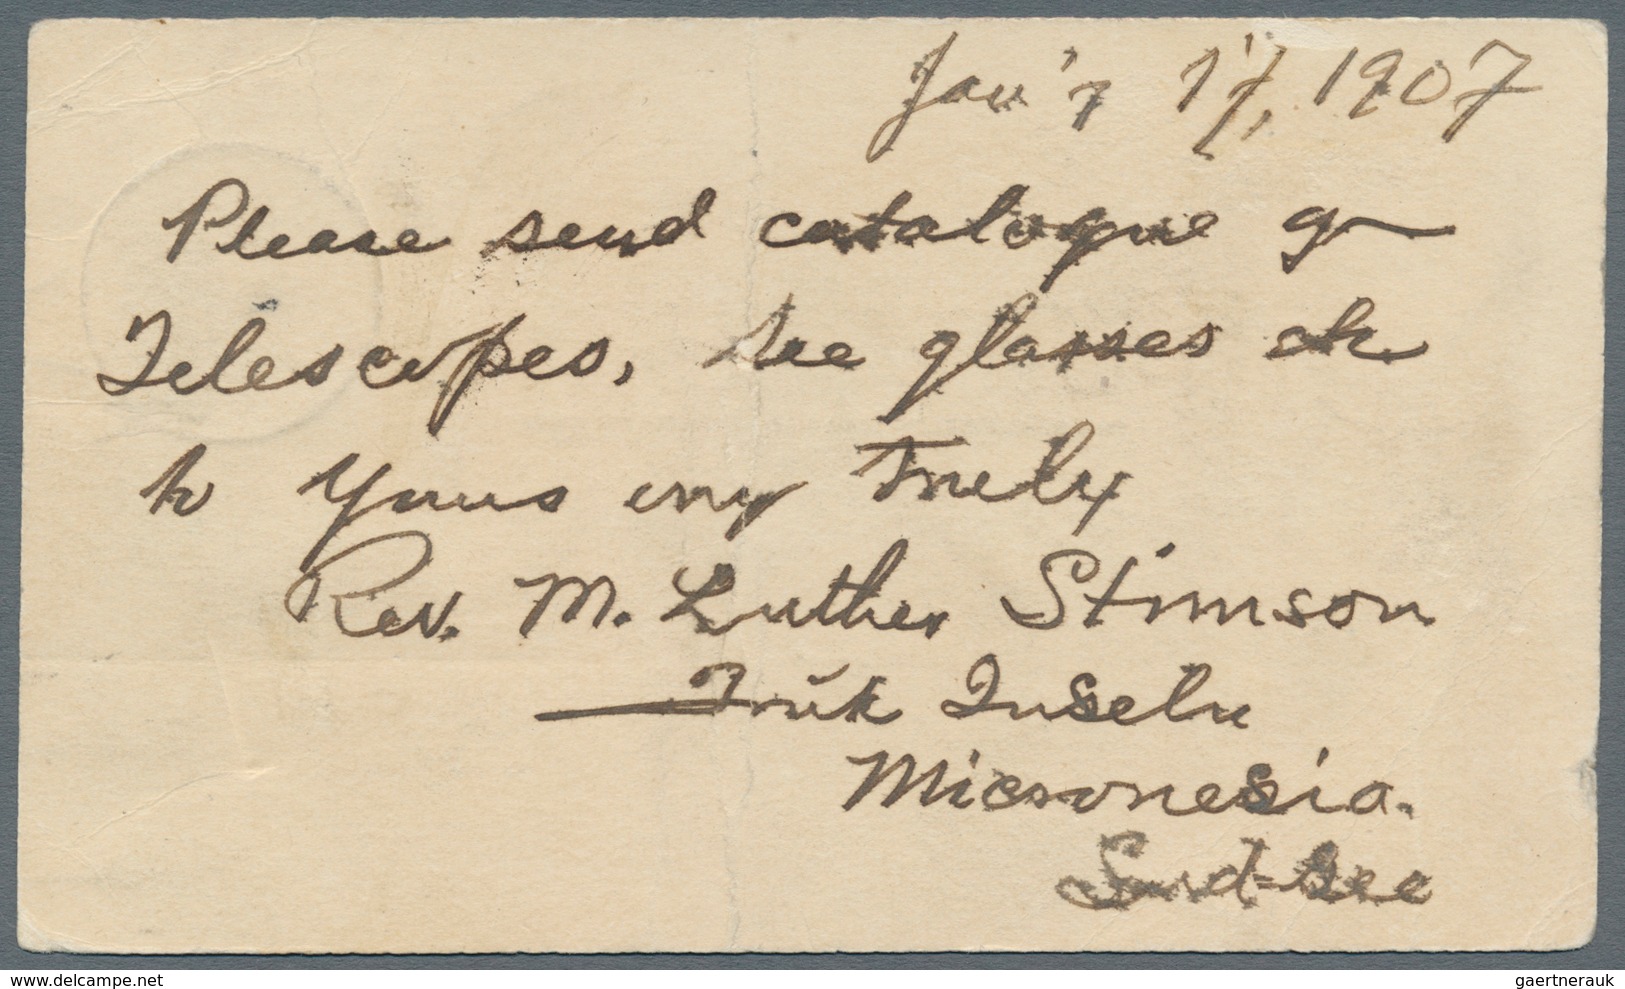 Jan'y 17, 1907
Please send catalogue of
Telescopes, see glasses etc
to Yours very Truly
Rev. M. Luther Stimson
Truk Inseln
Micronesia.
Sud-see
delcampe.net
gaertnerauk